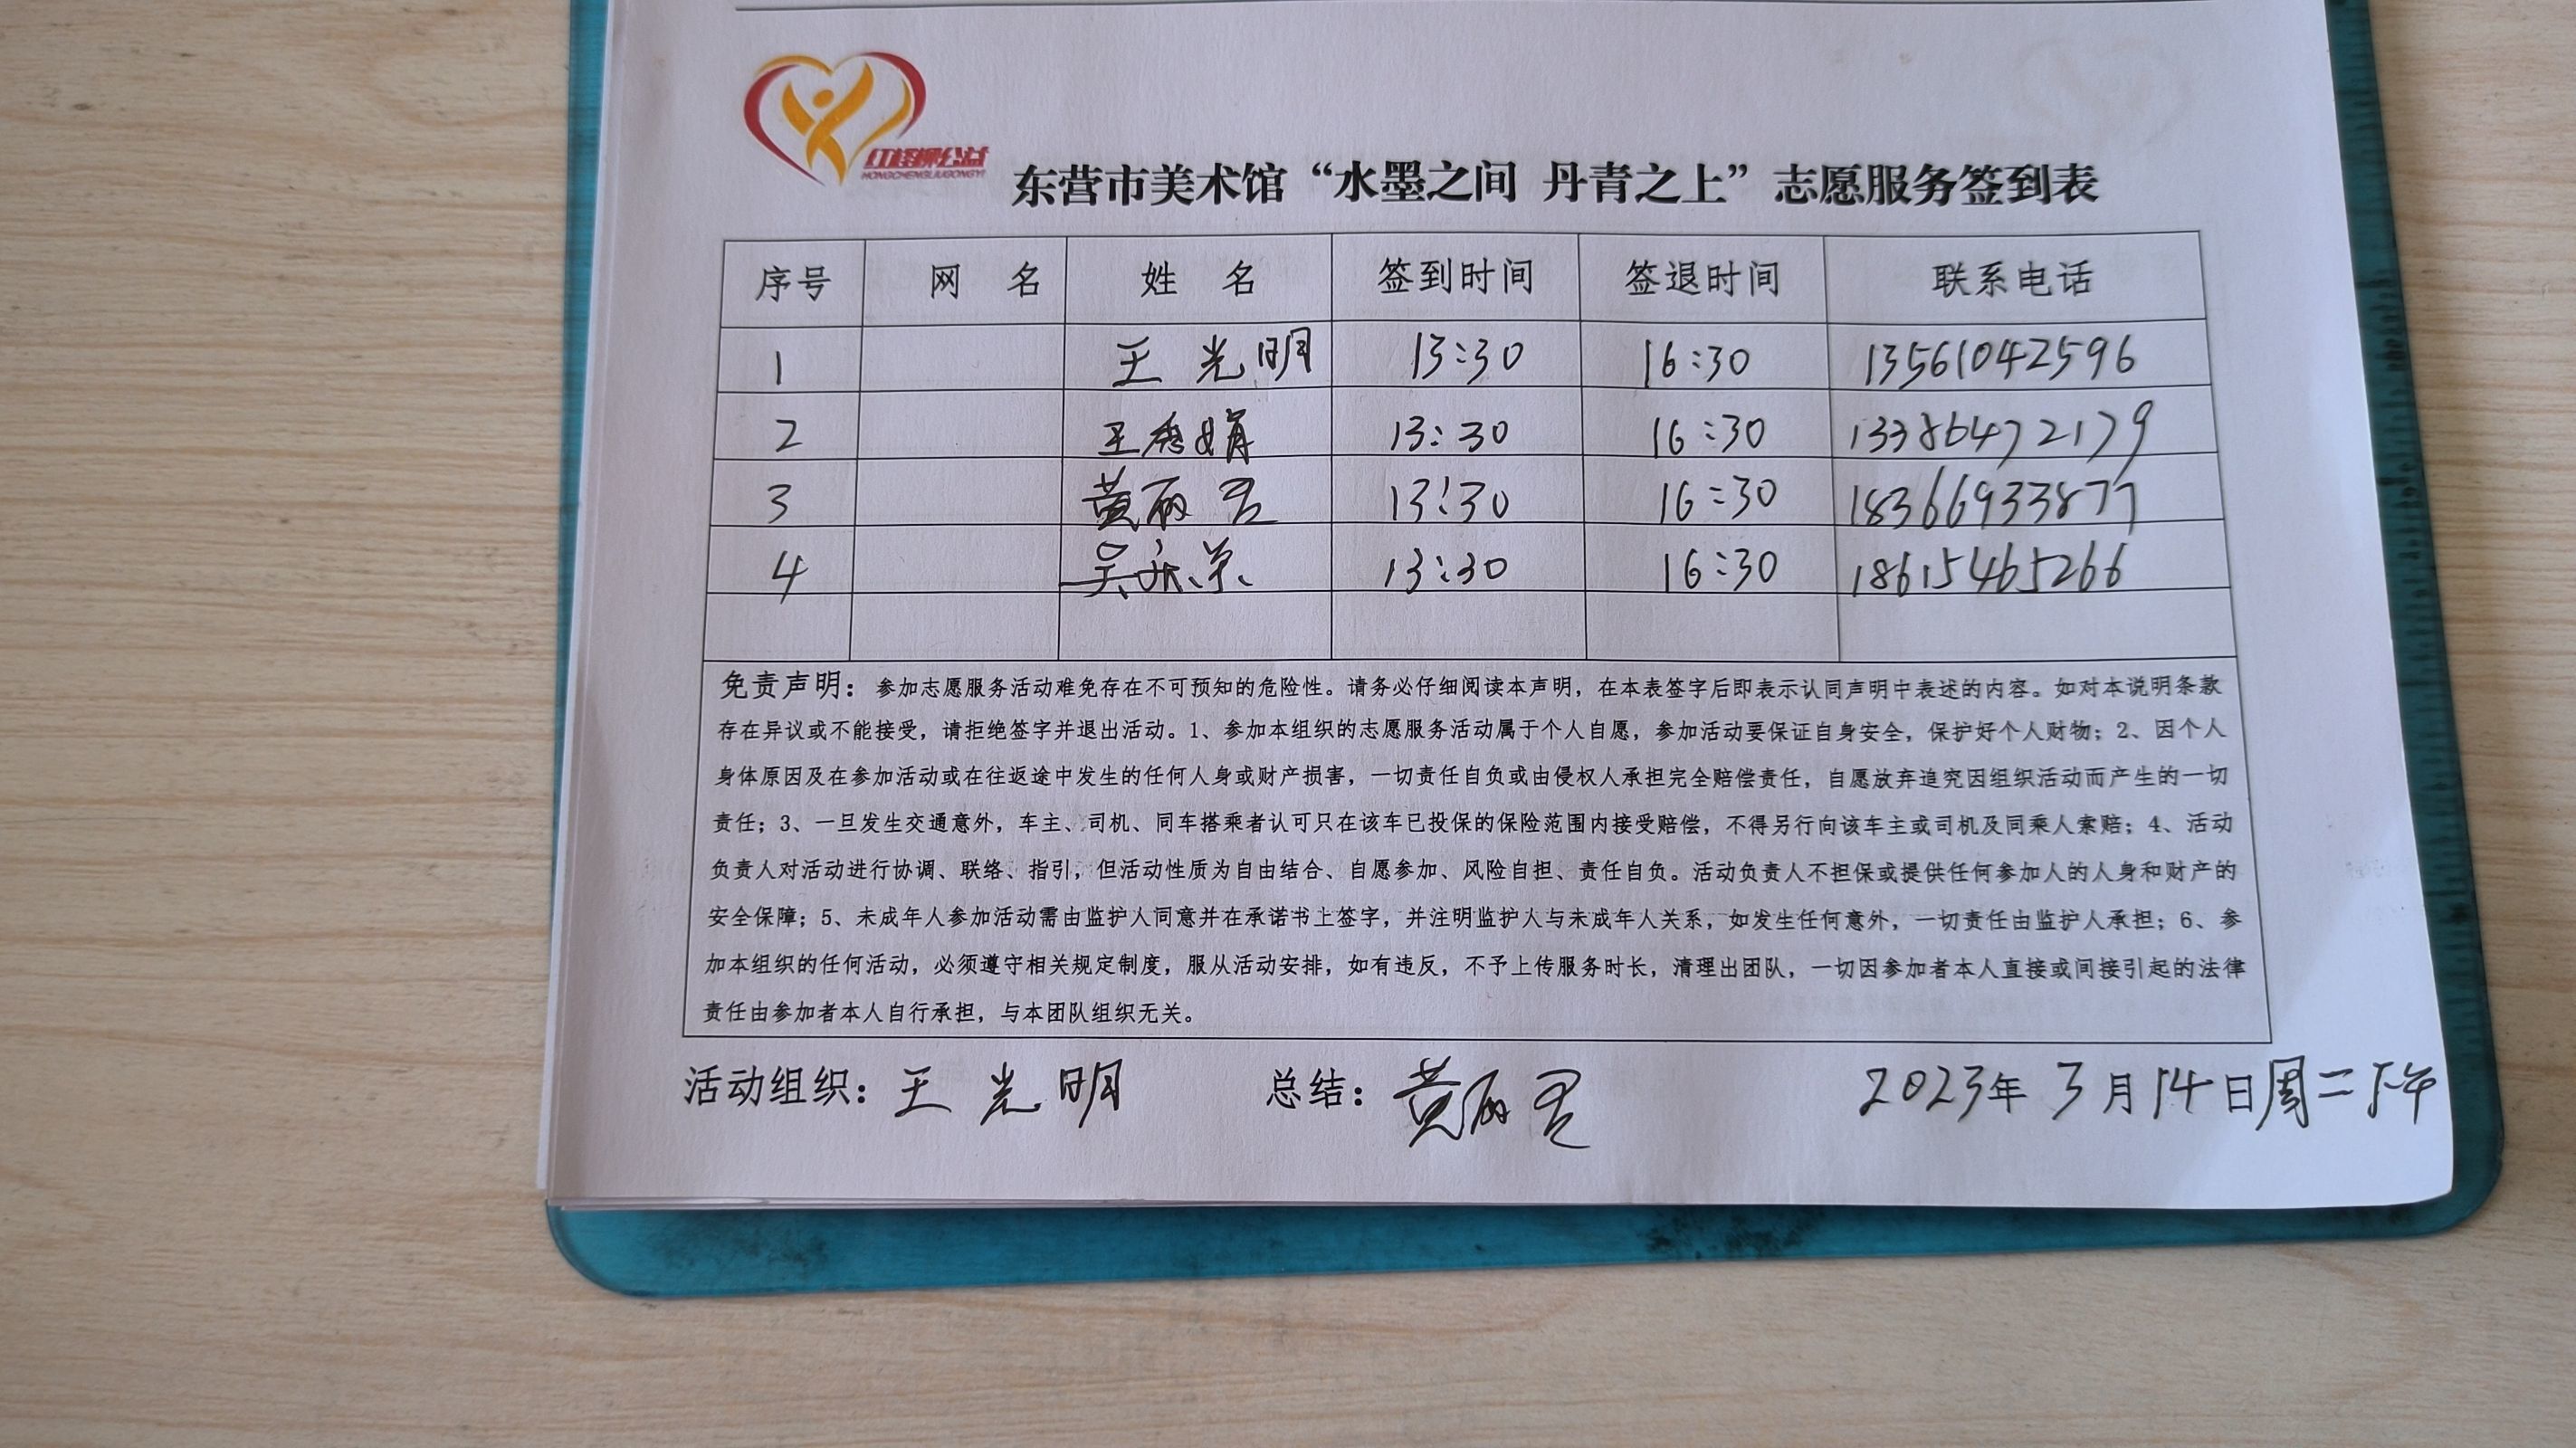 红柽柳公益
HONGCHENGLIUGONGYI
东营市美术馆“水墨之间 丹青之上”志愿服务签到表
序号 网 名 姓 名 签到时间 签退时间 联系电话
1 王光明 13:30 16:30 13561042596
2 王秀娟 13:30 16:30 13386472179
3 黄丽君 13:30 16:30 18366933877
4 吴永荣 13:30 16:30 18615465266
免责声明：参加志愿服务活动难免存在不可预知的危险性。请务必仔细阅读本声明，在本表签字后即表示认同声明中表述的内容。如对本说明条款
存在异议或不能接受，请拒绝签字并退出活动。1、参加本组织的志愿服务活动属于个人自愿，参加活动要保证自身安全，保护好个人财物；2、因个人
身体原因及在参加活动或在往返途中发生的任何人身或财产损害，一切责任自负或由侵权人承担完全赔偿责任，自愿放弃追究因组织活动而产生的一切
责任；3、一旦发生交通意外，车主、司机、同车搭乘者认可只在该车已投保的保险范围内接受赔偿，不得另行向该车主或司机及同乘人索赔；4、活动
负责人对活动进行协调、联络、指引，但活动性质为自由结合、自愿参加、风险自担、责任自负。活动负责人不担保或提供任何参加人的人身和财产的
安全保障；5、未成年人参加活动需由监护人同意并在承诺书上签字，并注明监护人与未成年人关系，如发生任何意外，一切责任由监护人承担；6、参
加本组织的任何活动，必须遵守相关规定制度，服从活动安排，如有违反，不予上传服务时长，清理出团队，一切因参加者本人直接或间接引起的法律
责任由参加者本人自行承担，与本团队组织无关。
活动组织：王光明 总结：黄丽君 2023年3月14日周二下午